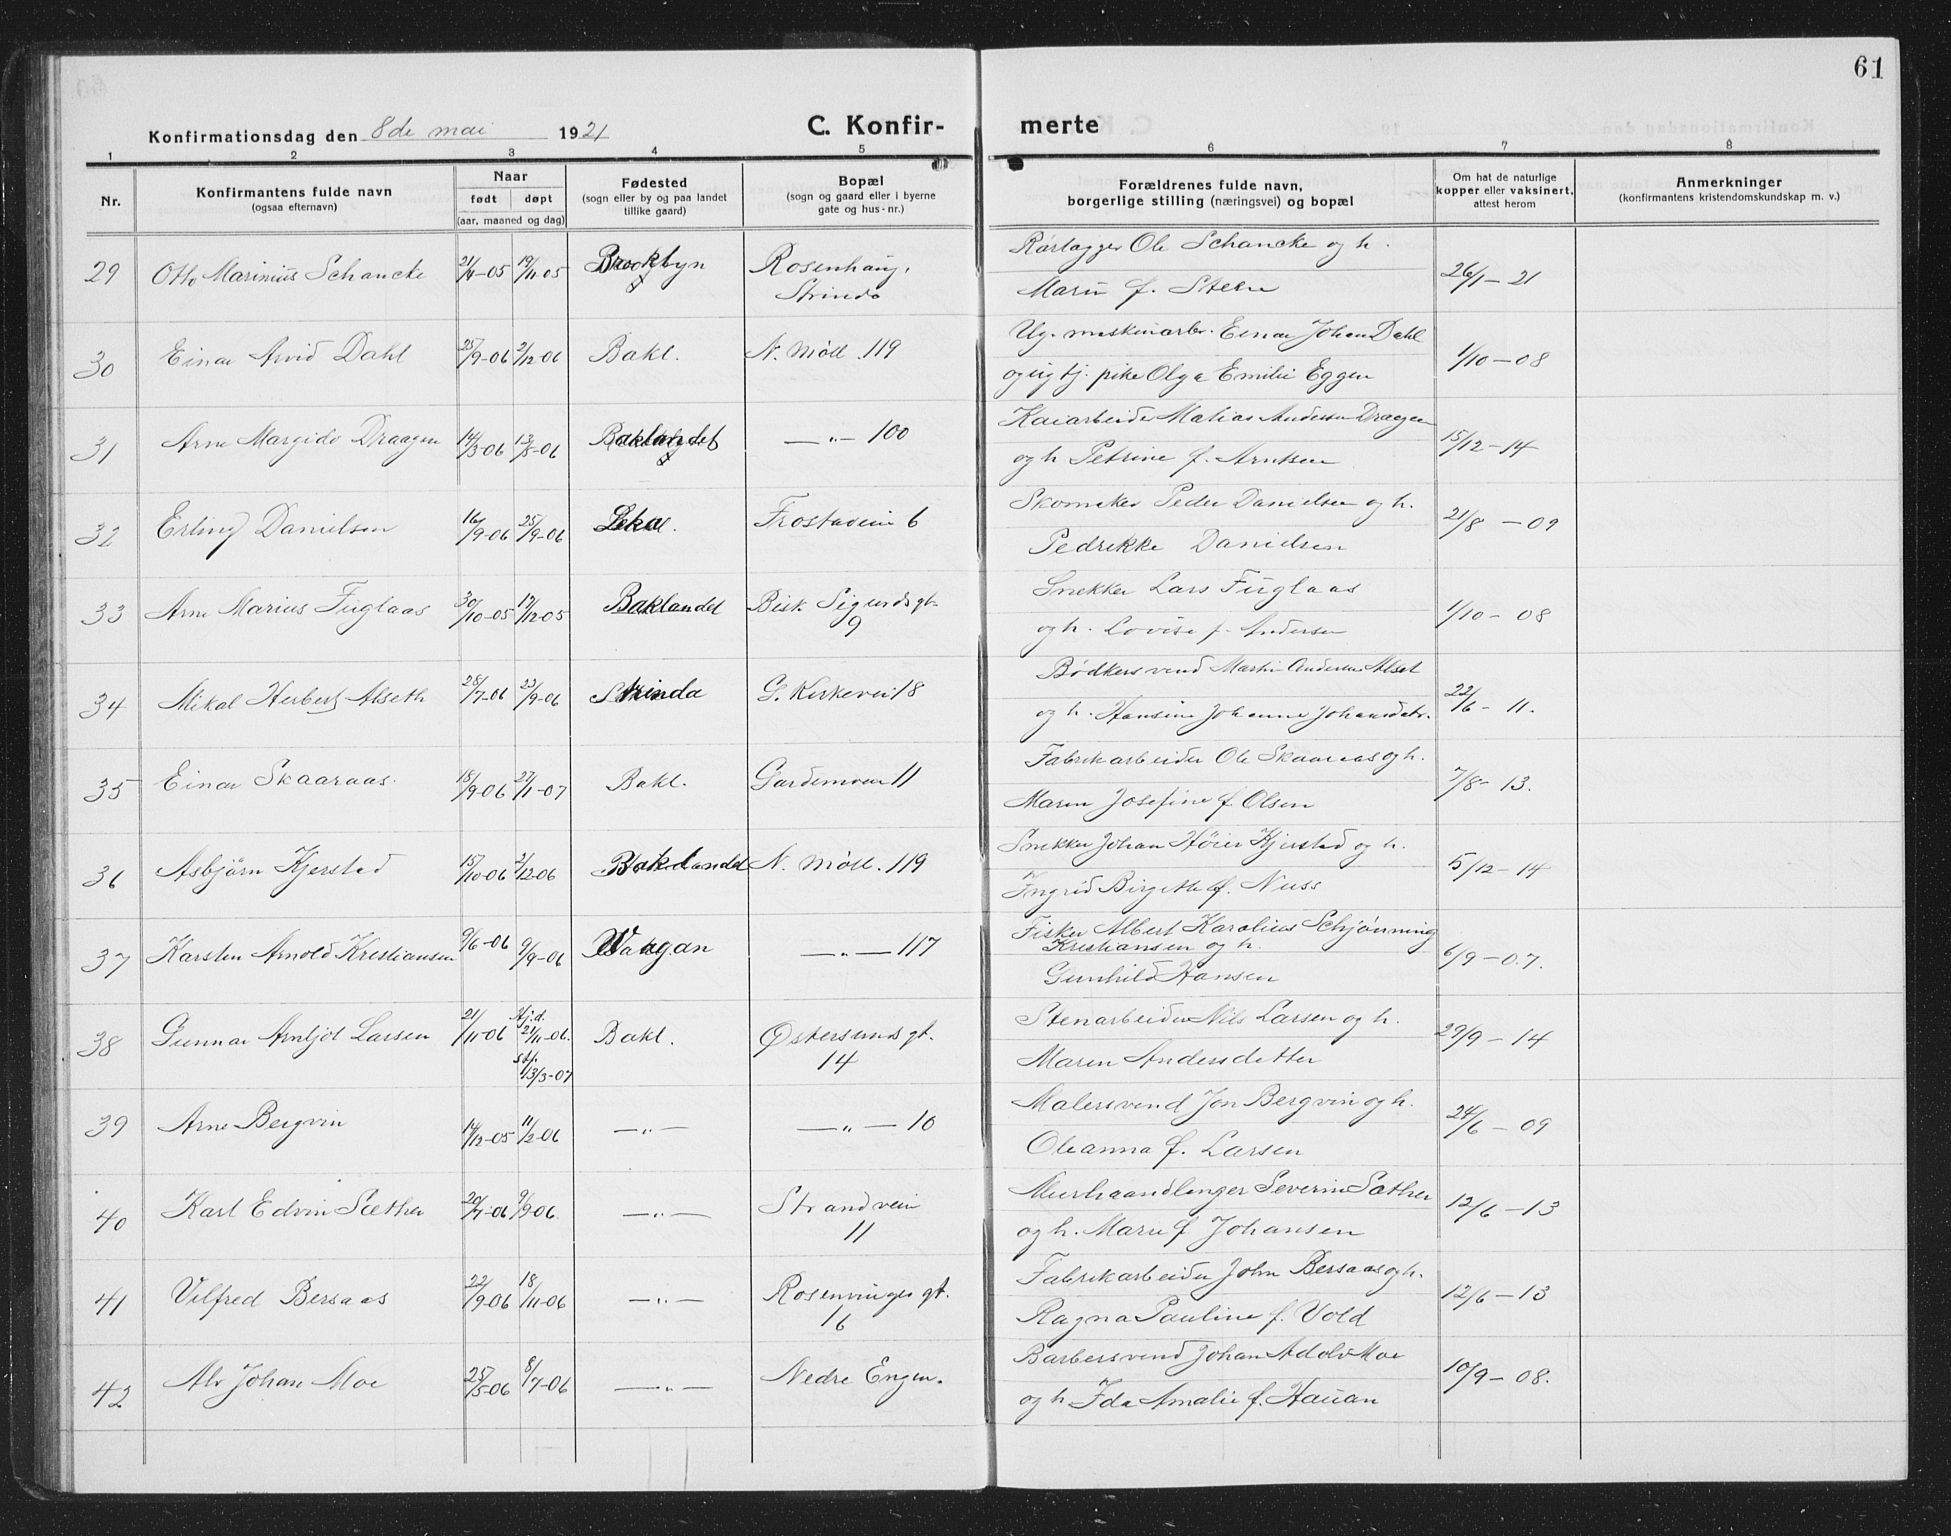 61
Konfirmationsdag den 8de mai 1921
C. Konfir-
merte
1 2 3 4 5 6 7 8
Nr.
Konfirmantens fulde navn
(ogsaa efternavn)
Naar
født døpt
(aar, maaned og dag)
Fødested
(sogn eller by og paa landet
tillike gaard)
Bopæl
(sogn og gaard eller i byerne
gate og hus-nr.)
Forældrenes fulde navn,
borgerlige stilling (næringsvei) og bopæl
Om hat de naturlige
kopper eller vaksinert,
attest herom
Anmerkninger
(konfirmantens kristendomskundskap m. v.)
29 Otto Marinius Schancke 21/4-05 19/11-05 Rosenhaug, Strinda
Rørlægger Ole Schancke og h.
Marie f. Steen
26/1-21
30 Einar Arvid Dahl 25/9-06 2/12-06 Bakl. N. Møll. 119
Ug. maskinarb. Einar Johan Dahl
og ug tj. pike Olga Emilie Eggen
1/10-08
31 Arne Margido Draagen 14/3-06 13/8-06 Baklandet —„— 100
Kaiarbeider Matias Andersen Draagen
og h Petrine f. Arntsen
15/12-14
32 Erling Danielsen 16/9-06 25/9-06 Frostaveien 6
Skomaker Peder Danielsen og h.
Pedrikke Danielsen
21/8-09
33 Arne Marius Fuglaas 30/10-05 17/12-05 Baklandet Bisk Sigurdsgt. 9
Snekker Lars Fuglaas
og h. Lovise f. Andersen
1/10-08
34 Mikal Herbert Alseth 28/7-06 23/9-06 Strinda G. Kirkevei 18
Bødkersvend Martin Andersen Alset
og h. Hansine Johanne Johansdatr.
22/6-11.
35 Einar Skaaraas. 18/9-06 27/1-07 Bakl. Gardemoen 11
Fabrikarbeider Ole Skaaraas og h.
Maren Josefine f. Olsen
7/8-13.
36 Asbjørn Kjerstad 15/10-06 2/12-06 Baklandet N. Møll. 119
Snekker Johan Høier Kjerstad og h.
Ingrid Birgitte f. Nuss
5/12-14
37 Karsten Arnold Kristiansen 9/6-06 9/9-06 Vaagan —„— 117
Fisker Albert Karolius Schjønning
Kristiansen og h.
Gunhild Hansen
6/9-07.
38 Gunnar Arnljot Larsen 21/11-06 Hj.d. 21/11-06. st. 13/3-07 Bakl. Østersundsgt. 14
Stenarbeider Nils Larsen og h.
Maren Andersdatter
29/9-14
39 Arne Bergvin 14/12-05 11/2-06 —„— —„— 10
Malersvend Jon Bergvin og h.
Oleanna f. Larsen
24/6-09
40 Karl Edvin Sæther 20/7-06 9/9-06 —„— Strandvein 11
Murhaandlanger Severin Sæther
og h. Marie f Johansen
12/6-13
41 Vilfred Bersaas 22/9-06 18/11-06 —„— Rosenvinges gt. 16
Fabrikarbeider John Bersaas og h.
Ragna Pauline f. Vold
12/6-13
42 Alv Johan Moe 25/5-06 8/7-06 —„— Nedre Engen.
Barbersvend Johan Adolv Moe
og h Ida Amalie f. Hauan
10/9-08.